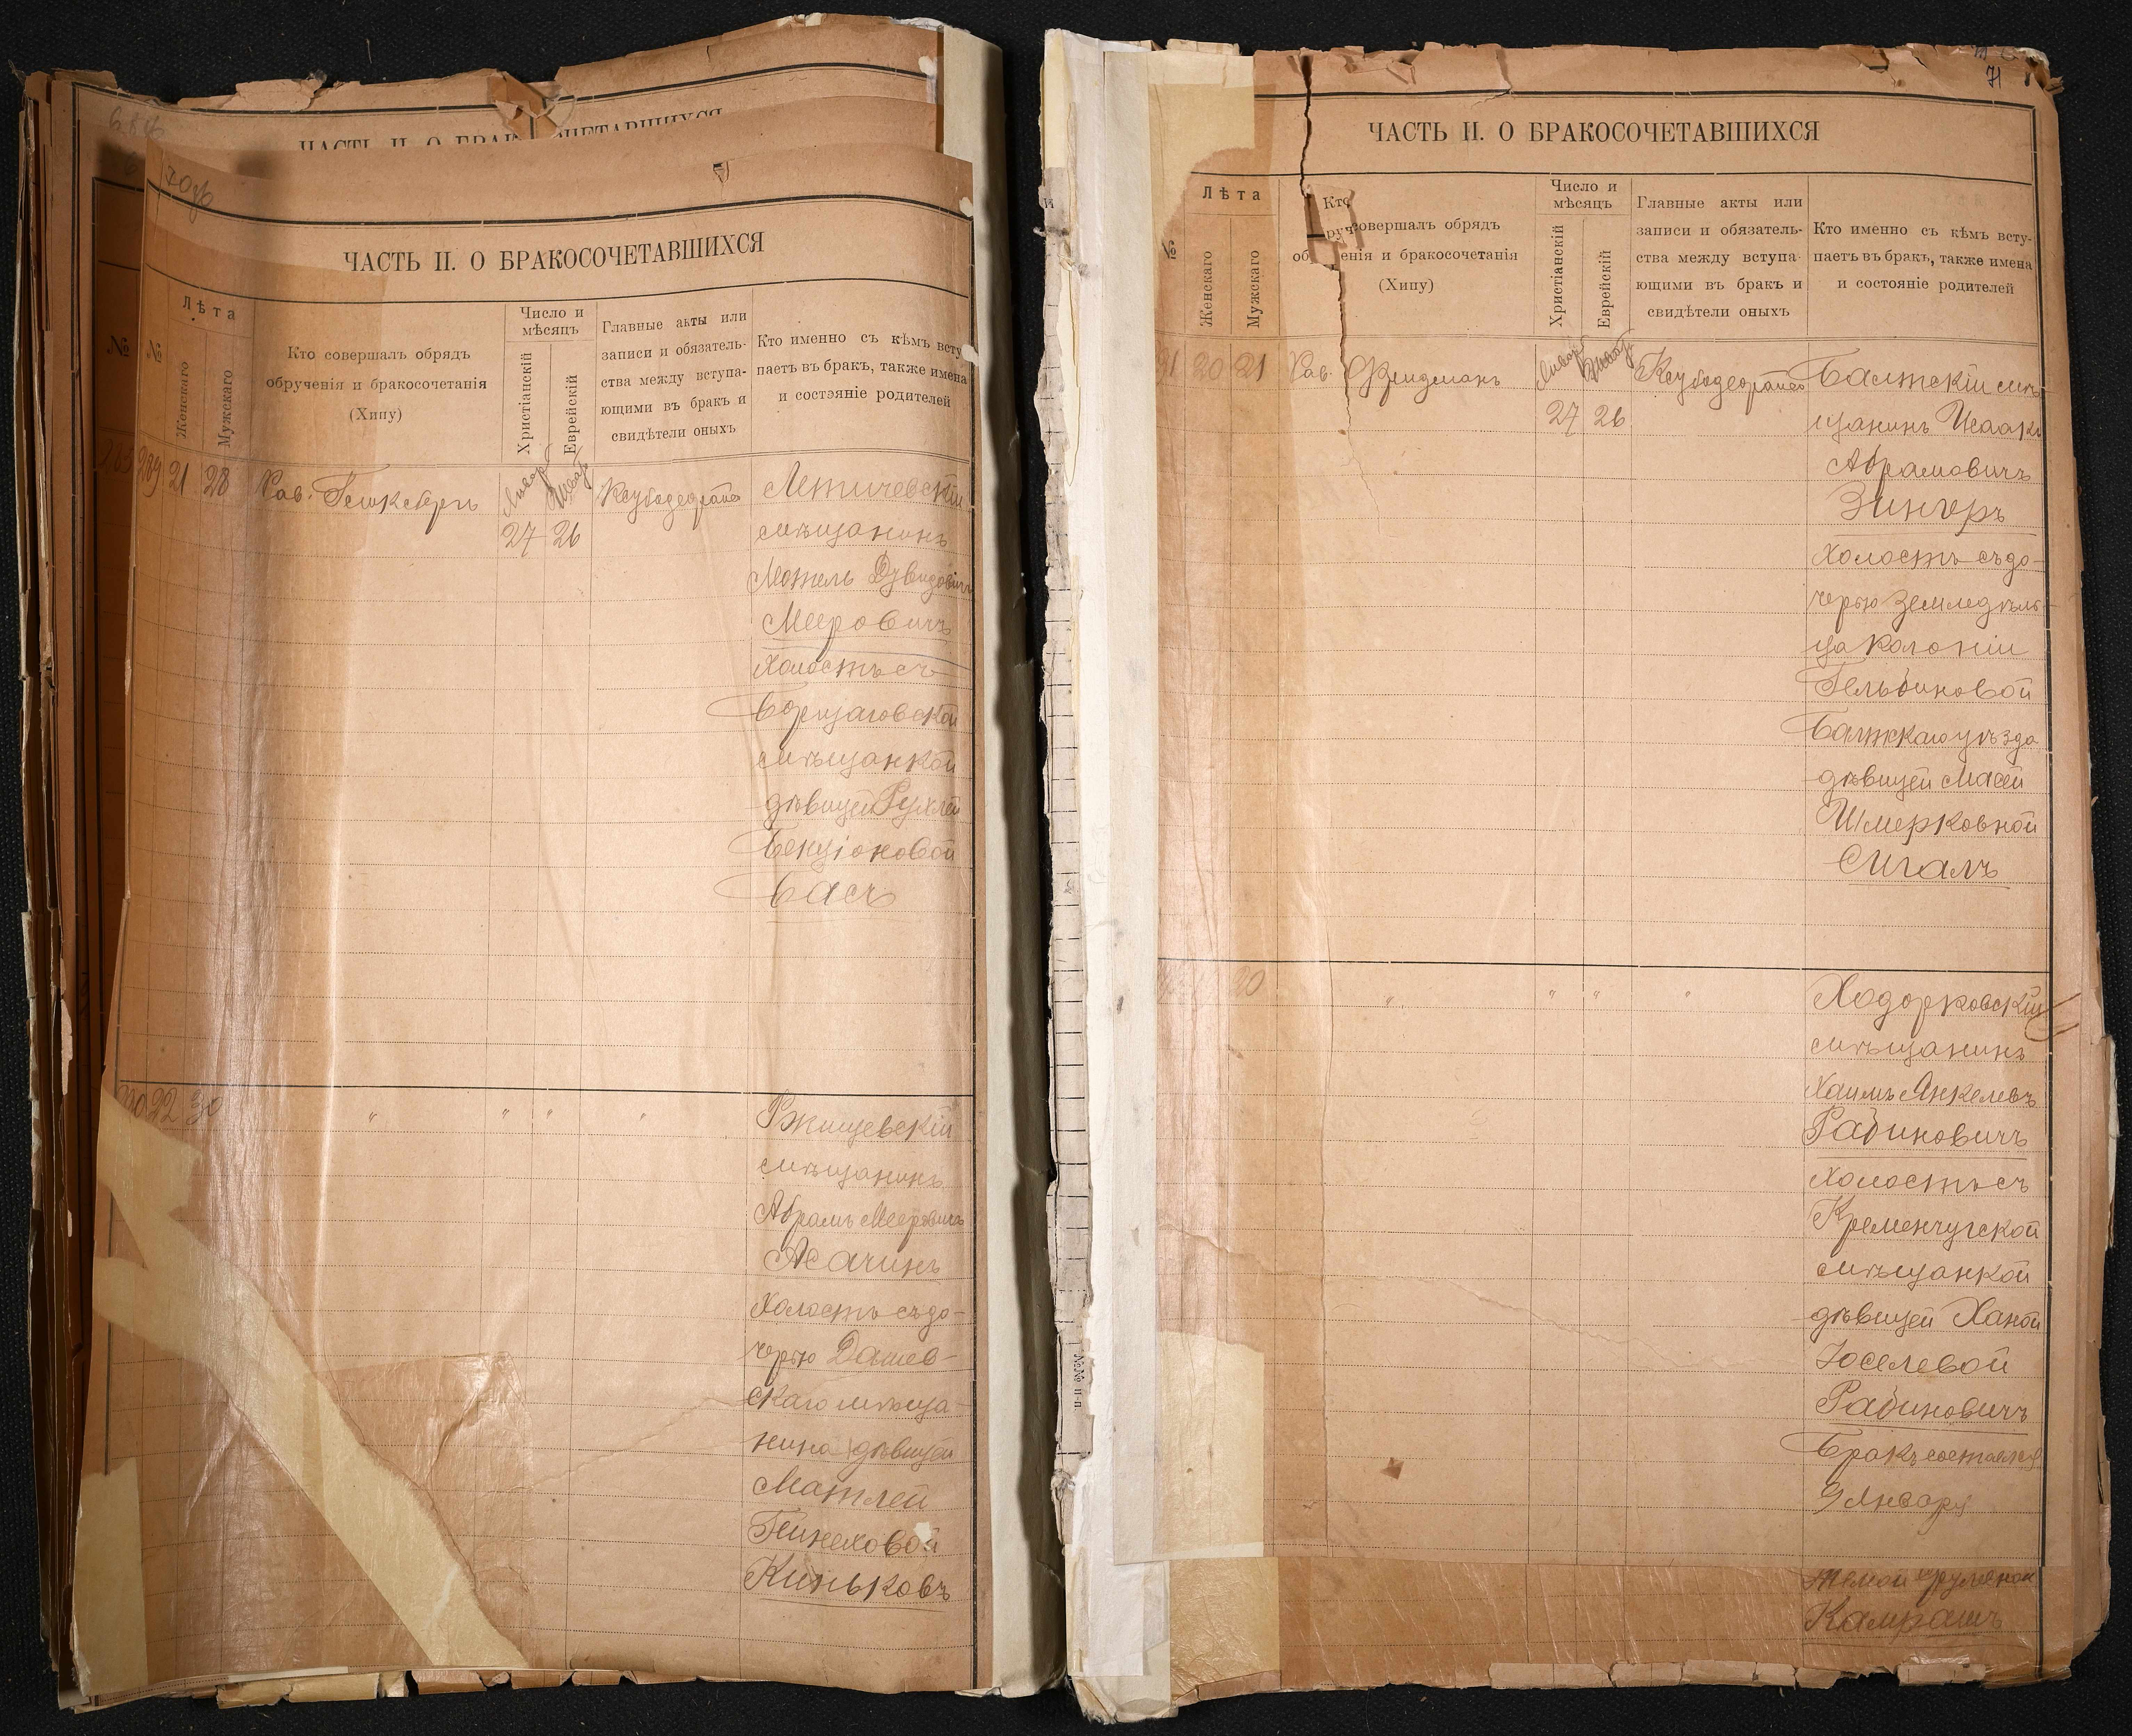 ЧАСТЬ II. О БРАКОСОЧЕТАВШИХСЯ
70об
ЧАСТЬ II. О БРАКОСОЧЕТАВШИХСЯ
№
№
Лѣта
Женскаго
Мужскаго
Кто совершалъ обрядъ
обрученія и бракосочетанія
(Хипу)
Число и
мѣсяцъ
Христіанскій
Еврейскій
Главные акты или
записи и обязатель-
ства между вступа-
ющими въ бракъ и
свидѣтели оныхъ
Кто именно съ кѣмъ всту
паетъ въ бракъ, также имена
и состояніе родителей
289 21 28 Рав.
Январ Шват
27 26
Летичевскій
мѣщанинъ
Мотель Дувидовичъ
Мееровичъ
Холостъ съ
Борщаговской
мѣщанкой
дѣвицей Рухлей
Бенціоновой
Басъ
290 22 30 " " " "
Ржищевскій
мѣщанинъ
Абрамъ Мееровичъ
Асачинъ
Холостъ съ до-
черью Дашев-
скаго мѣща-
нина дѣвицей
Матлей
Пинеховой
Киньковъ
71
ЧАСТЬ II. О БРАКОСОЧЕТАВШИХСЯ
№
Лѣта
Женскаго
Мужскаго
Кто совершалъ обрядъ
обрученія и бракосочетанія
(Хипу)
Число и
мѣсяцъ
Христіанскій
Еврейскій
Главные акты или
записи и обязатель-
ства между вступа-
ющими въ бракъ и
свидѣтели оныхъ
Кто именно съ кѣмъ всту-
паетъ въ бракъ, также имена
и состояніе родителей
91 20 21 Рав. Фридманъ
Январ Шват
27 26
Балтскій мѣ-
щанинъ Исаакъ
Абрамовичъ
Зингеръ
Холостъ съ до-
черью земледѣль-
ца колоніи
Гельбиновой
Балтскаго уѣзда
дѣвицей Масей
Шмерковной
Сигалъ
20 " " " "
Ходорковскій
мѣщанинъ
Хаимъ Янкелевъ
Рабиновичъ
Холостъ съ
Кременчугской
мѣщанкой
дѣвицей Ханой
Іоселевой
Рабиновичъ
Бракъ состоялся
9 Января
№№ п-п.